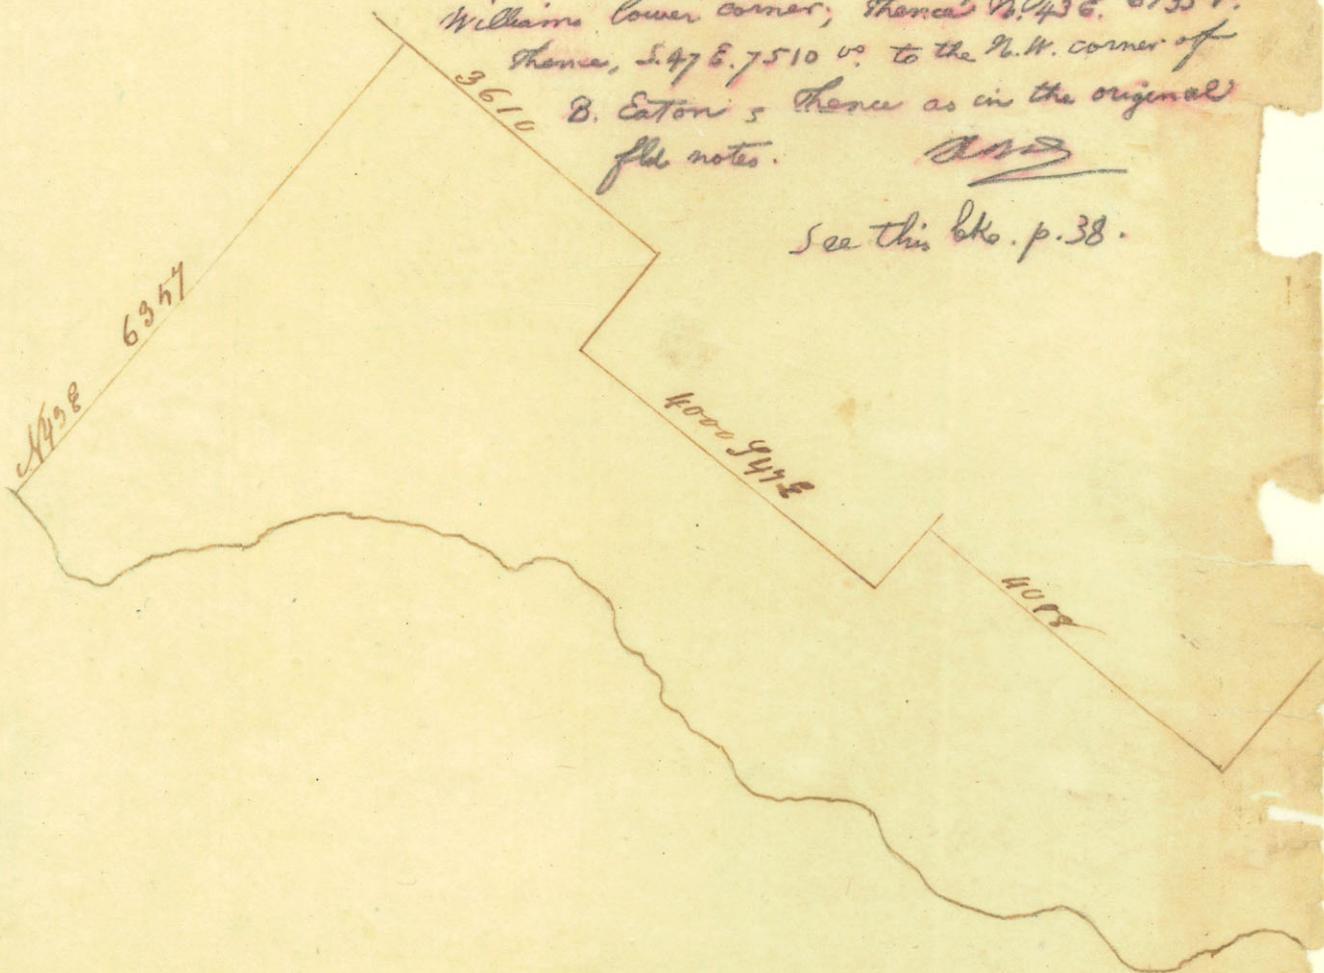 Williams lower corner; Thence N. 43 E.
Thence, S. 47 E. 7510 vs. to the N.W. corner of
B. Eaton; Thence as in the original
fld notes.
See this bk. p. 38.
3610
N43E 6357
4000 S47E